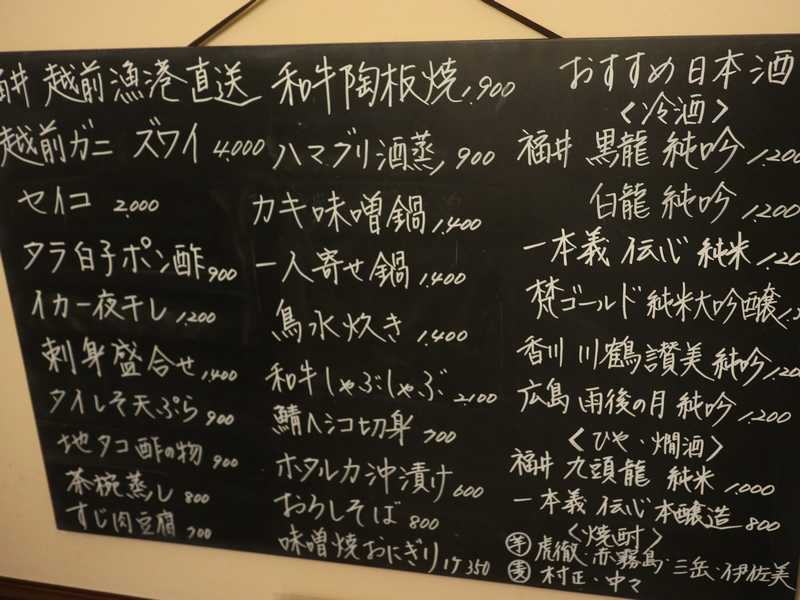 井 越前漁港直送
越前ガニ ズワイ 4,000
セイコ 2,000
タラ白子ポン酢 900
イカ一夜干し 1,200
刺身盛合せ 1,400
タイしそ天ぷら 900
地タコ酢の物 900
茶碗蒸し 800
すじ肉豆腐 700
和牛陶板焼 1,900
ハマグリ酒蒸 900
カキ味噌鍋 1,400
一人寄せ鍋 1,400
鳥水炊き 1,400
和牛しゃぶしゃぶ 2,100
鯖ヘシコ切身 700
ホタルカ沖漬け 600
おろしそば 800
味噌焼おにぎり 1ケ 350
おすすめ日本酒
<冷酒>
福井 黒龍 純吟 1,200
白龍 純吟 1,200
一本義 伝心 純米 1,20
梵ゴールド 純米大吟醸 1,
香川 川鶴讃美 純吟 1,20
広島 雨後の月 純吟 1,200
<ひや・燗酒>
福井 九頭龍 純米 1,000
一本義 伝心 本醸造 800
<焼酎>
芋 虎徹・赤霧島・三岳・伊佐美
麦 村正・中々